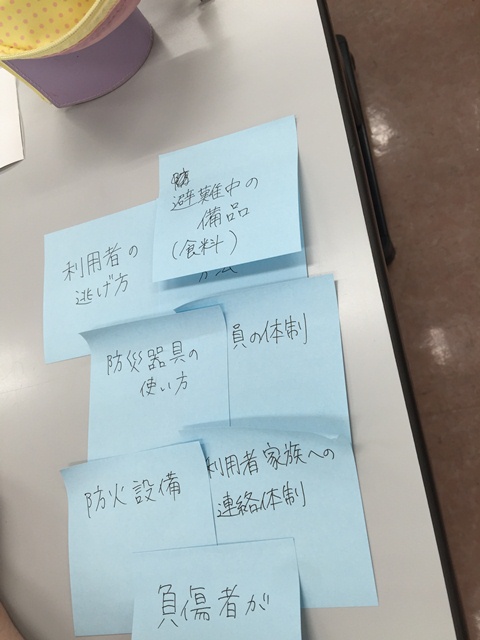 避難中の
備品
(食料)
利用者の
逃げ方
方法
防災器具の
使い方
員の体制
防火設備
利用者家族への
連絡体制
負傷者が